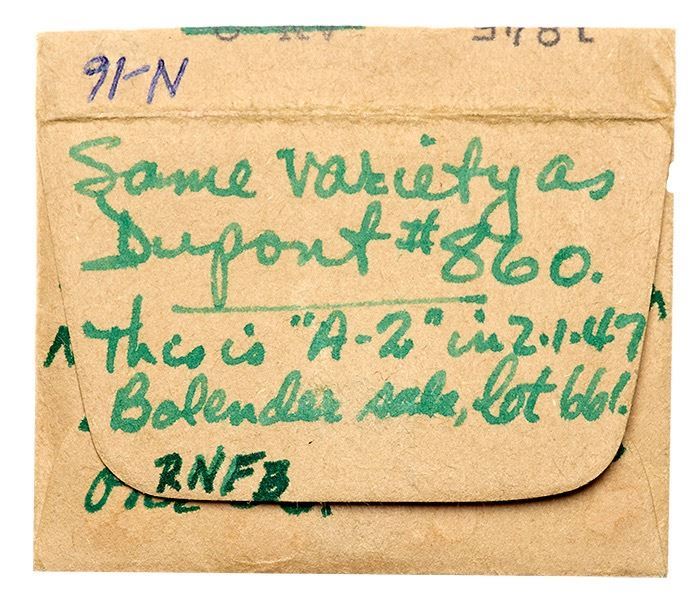 91-N
Same variety as
Dupont #860.
This is "A-2" in 2.1.47
Bolender sale, lot 661.
RNFB